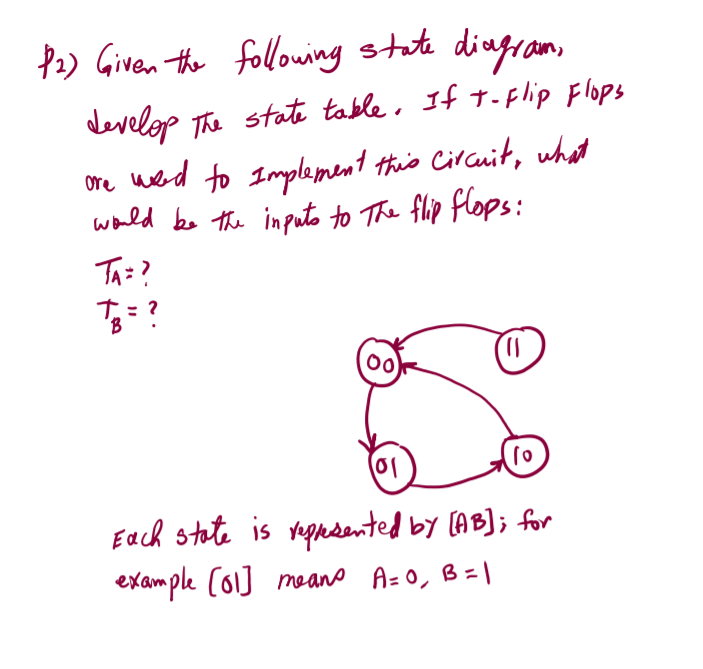 P2) Given the following state diagram,
develop The state table. If T-Flip Flops
are used to Implement this Circuit, what
would be the inputs to The flip flops:
TA = ?
TB = ?
00
11
01
10
Each state is represented by [AB]; for
example [01] means A=0, B=1